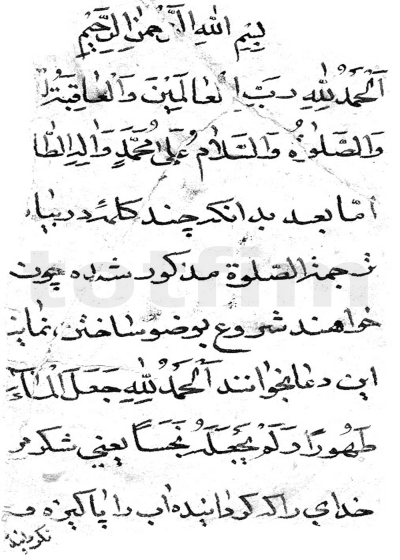 بسم الله الرحمن الرحيم
اَلْحَمْدُ لِلّٰهِ رَبِّ الْعَالَمِينَ وَالْعَاقِبَةُ
وَالصَّلٰوةُ وَالسَّلَامُ عَلٰى مُحَمَّدٍ وَاٰلِهِ الطَّا
امّا بعد بدانكه چند كلمهٔ در بيا
ترجمة الصّلوة مذكور شده چون
خواهند شروع بوضو ساختن نماين
اين دعا بخوانند اَلْحَمْدُ لِلّٰهِ جَعَلَ الْمَاۤءَ
طَهُورًا وَلَمْ يَجْعَلْهُ نَجَسًا يعني شكر مر
خداي راكه گردانيده آب را پاكيزه و
نگردانيد
totfim